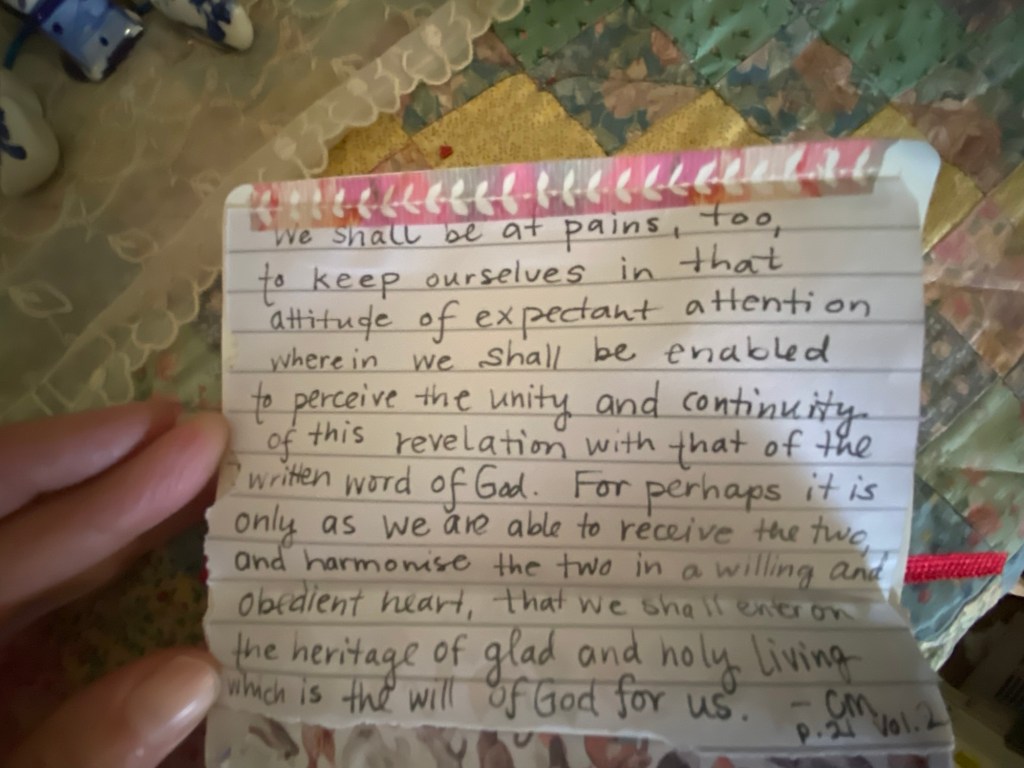 We shall be at pains, too,
to keep ourselves in that
attitude of expectant attention
wherein we shall be enabled
to perceive the unity and continuity
of this revelation with that of the
written word of God. For perhaps it is
only as we are able to receive the two,
and harmonise the two in a willing and
obedient heart, that we shall enter on
the heritage of glad and holy living
which is the will of God for us. - CM
p.21 Vol.2